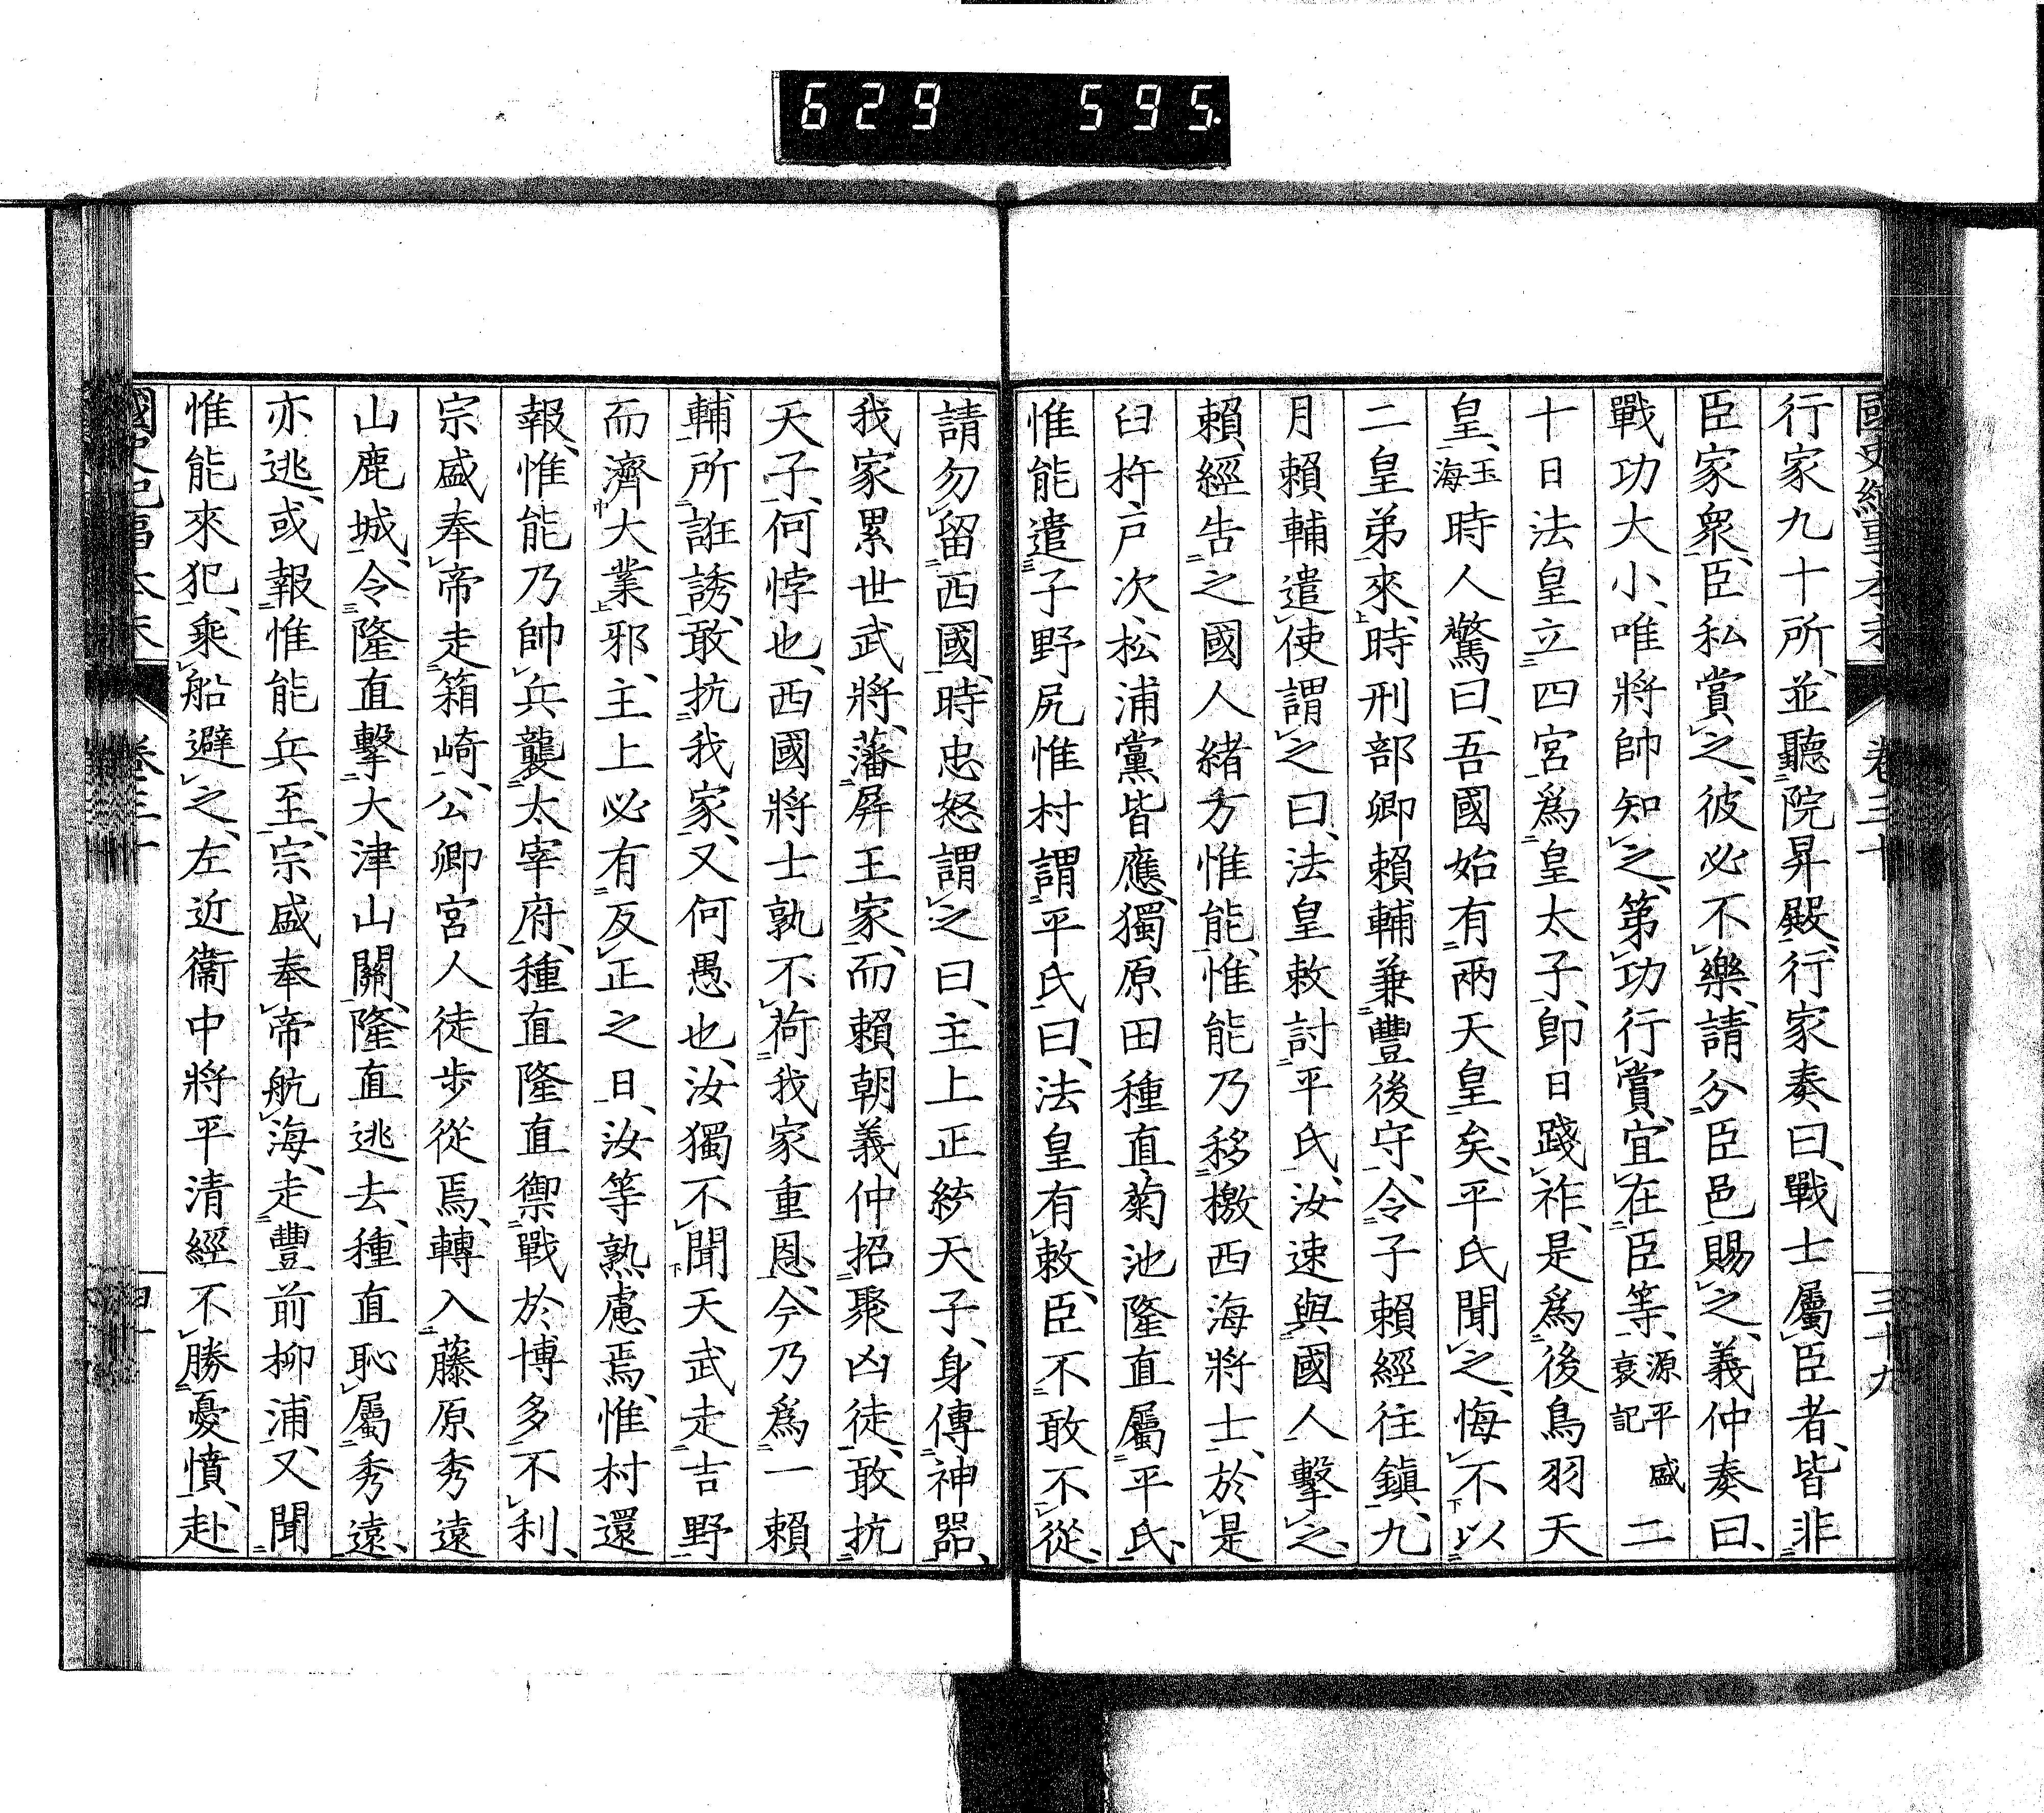 629 595.
國史紀事本末 卷三十 三十九
行家九十所、並聽院昇殿、行家奏曰、戰士屬臣者、皆非
臣家衆、臣私賞之、彼必不樂、請分臣邑賜之、義仲奏曰、
戰功大小、唯將帥知之、第功行賞、宜在臣等、源平盛衰記 二
十日法皇立四宮爲皇太子、卽日踐祚、是爲後鳥羽天
皇、玉海 時人驚曰、吾國始有兩天皇矣、平氏聞之、悔不以
二皇弟來、時刑部卿賴輔兼豐後守、令子賴經往鎭、九
月賴輔遣使謂之曰、法皇敕討平氏、汝速與國人擊之、
賴經告之國人緒方惟能、惟能乃移檄西海將士、於是
臼杵戶次、松浦黨皆應、獨原田種直菊池隆直屬平氏、
惟能遣子野尻惟村謂平氏曰、法皇有敕、臣不敢不從、
請勿留西國、時忠怒謂之曰、主上正統天子、身傳神器、
我家累世武將、藩屛王家、而賴朝義仲招聚凶徒、敢抗
天子、何悖也、西國將士孰不荷我家重恩、今乃爲一賴
輔所誑誘、敢抗我家、又何愚也、汝獨不聞天武走吉野
而濟大業邪、主上必有反正之日、汝等熟慮焉、惟村還
報、惟能乃帥兵襲太宰府、種直隆直禦戰於博多、不利、
宗盛奉帝走箱崎、公卿宮人徒步從焉、轉入藤原秀遠
山鹿城、令隆直擊大津山關、隆直逃去、種直恥屬秀遠、
亦逃、或報惟能兵至、宗盛奉帝航海、走豐前柳浦、又聞
惟能來犯、乘船避之、左近衞中將平清經不勝憂憤、赴